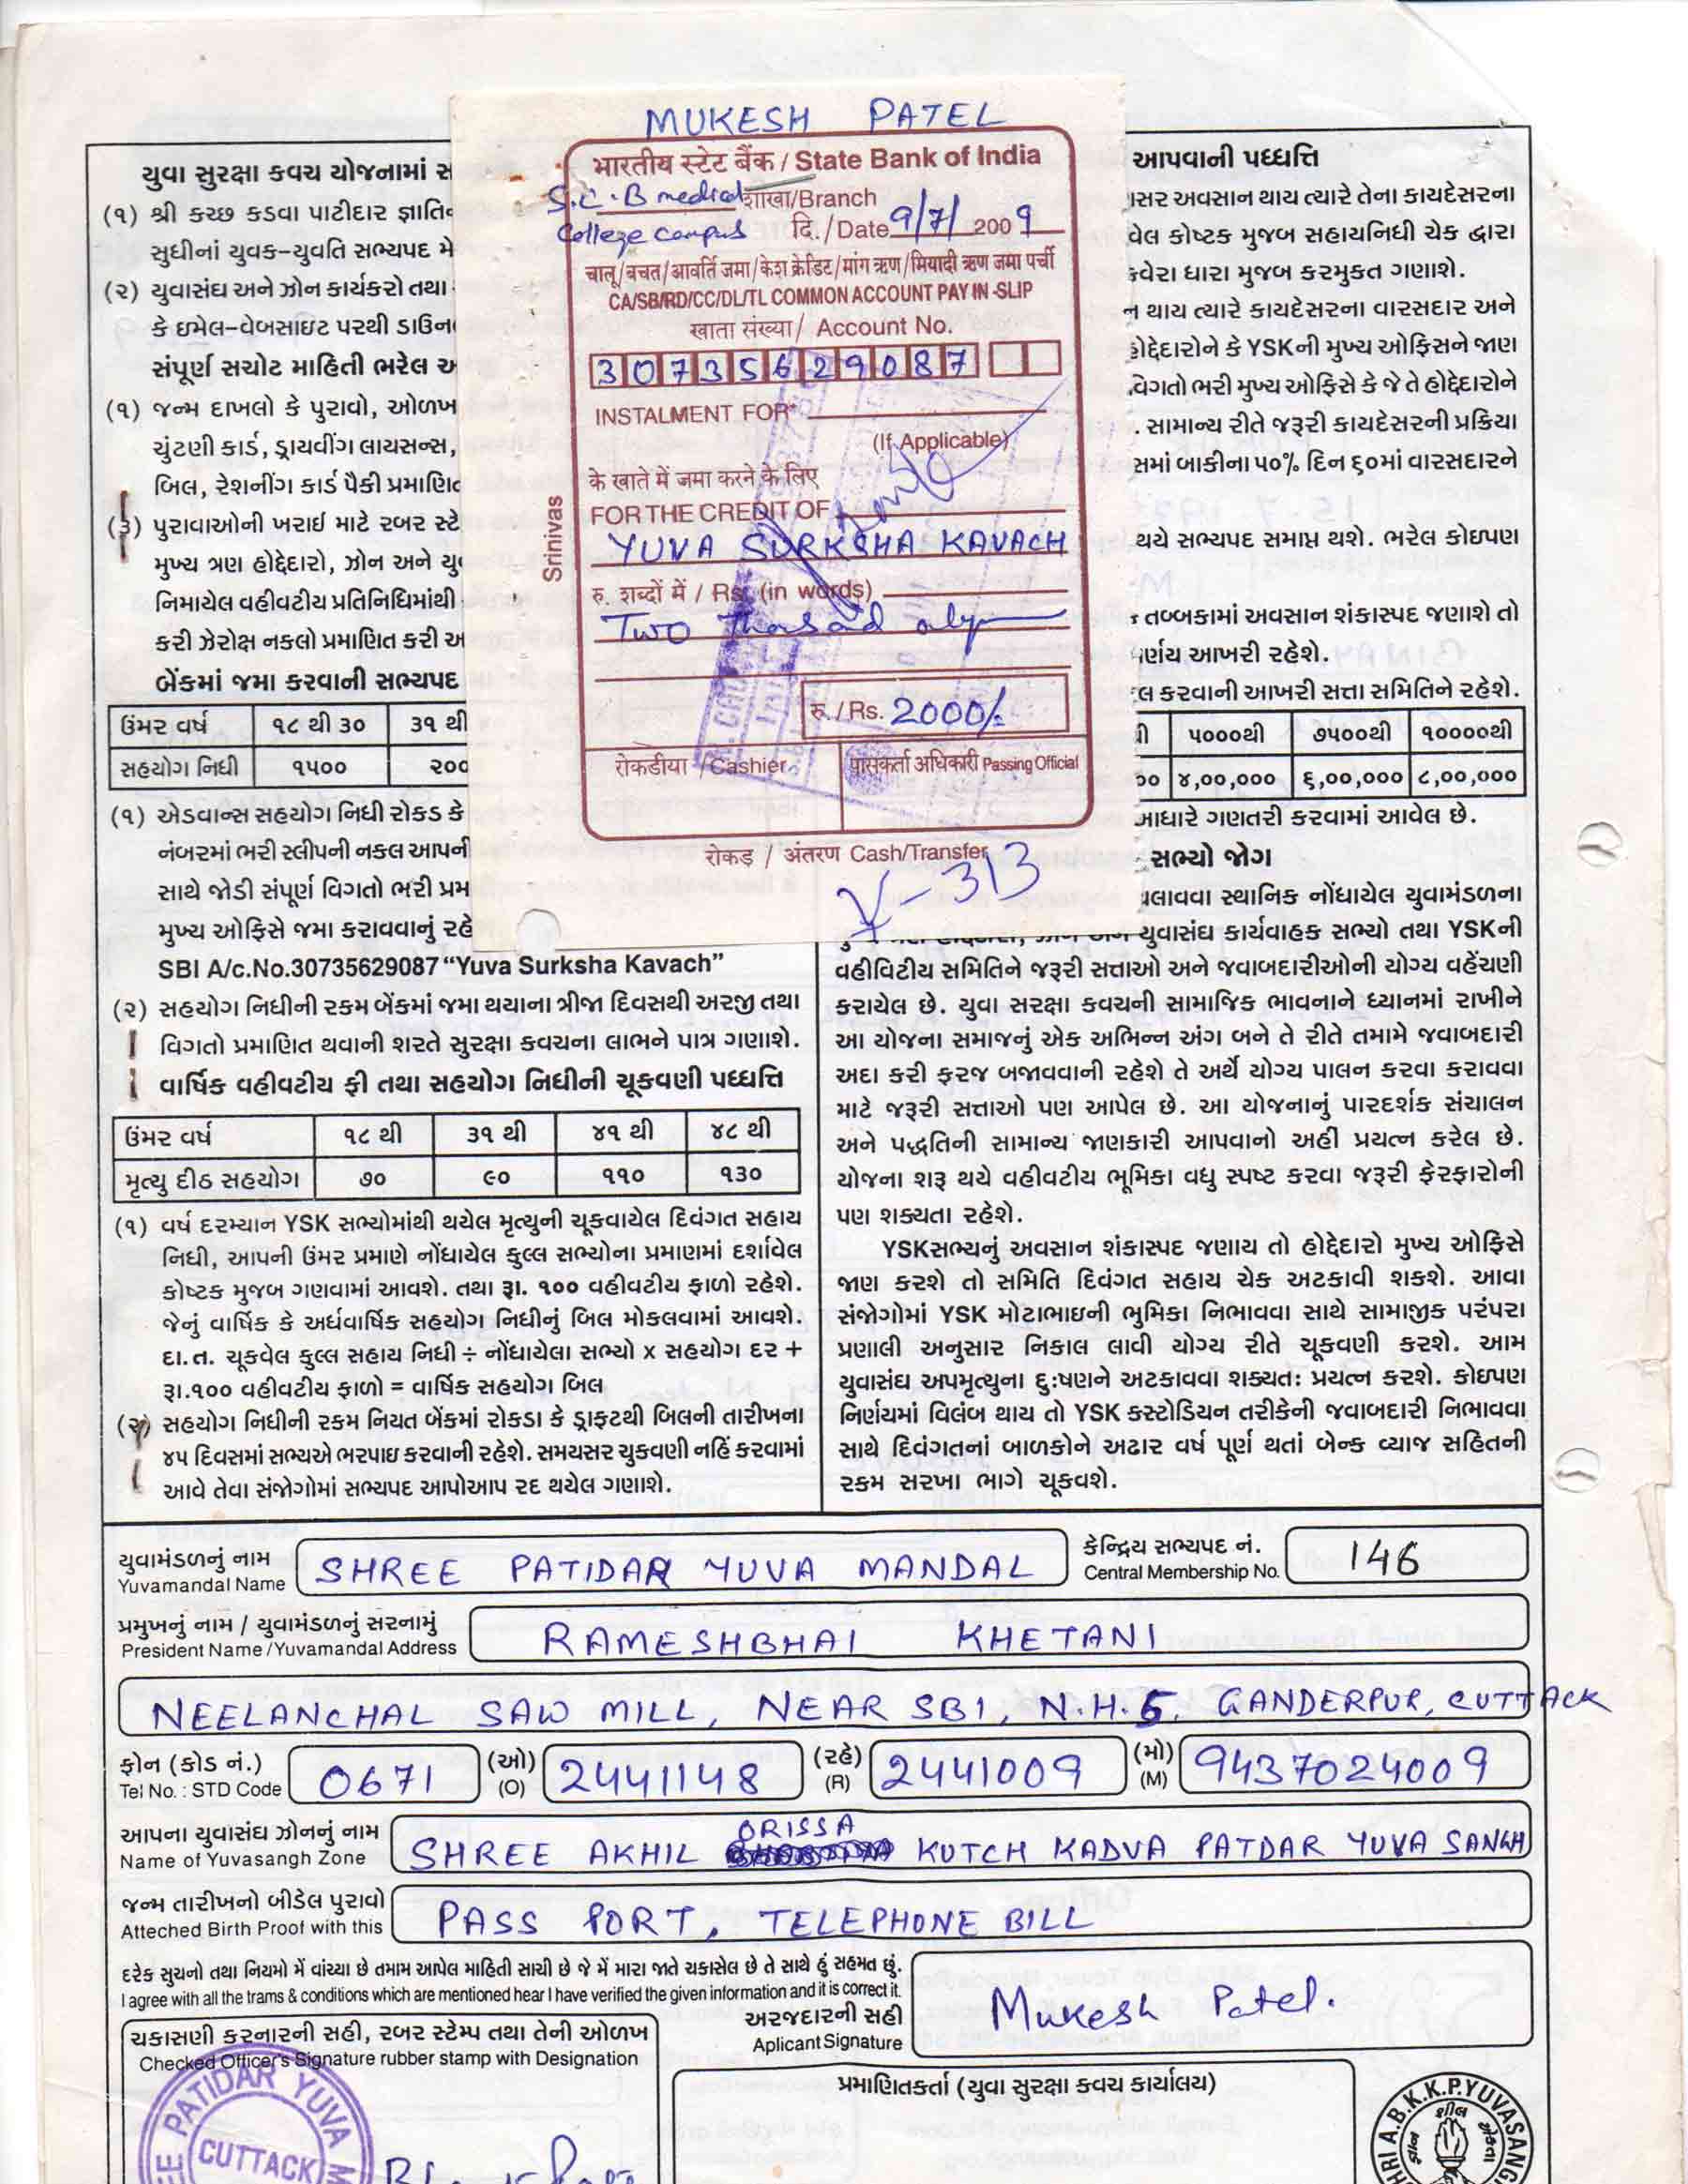 MUKESH PATEL
भारतीय स्टेट बैंक / State Bank of India
S.C.B medical शाखा/Branch
College campus दि./Date 9/7/ 2009
चालू/बचत/आवर्ति जमा/केश क्रेडिट/मांग ऋण/मियादी ऋण जमा पर्ची
CA/SB/RD/CC/DL/TL COMMON ACCOUNT PAY IN -SLIP
खाता संख्या/ Account No.
30735629087
INSTALMENT FOR*
(If Applicable)
के खाते में जमा करने के लिए
FOR THE CREDIT OF
YUVA SURKSHA KAVACH
रु. शब्दों में / Rs. (in words)
Two
रु. / Rs. 2000/-
रोकडीया /Cashier
पासकर्ता अधिकारी Passing Official
रोकड़ / अंतरण Cash/Transfer
313
Srinivas
યુવા સુરક્ષા કવચ યોજનામાં સ
(૧) શ્રી કચ્છ કડવા પાટીદાર જ્ઞાતિ
સુધીનાં યુવક-યુવતિ સભ્યપદ મે
(૨) યુવાસંઘ અને ઝોન કાર્યકરો તથા
કે ઇમેલ-વેબસાઇટ પરથી ડાઉન
સંપૂર્ણ સચોટ માહિતી ભરેલ અ
(૧) જન્મ દાખલો કે પુરાવો, ઓળખ
ચુંટણી કાર્ડ, ડ્રાયવીંગ લાયસન્સ,
બિલ, રેશનીંગ કાર્ડ પૈકી પ્રમાણિ
(૩) પુરાવાઓની ખરાઇ માટે રબર સ્ટે
મુખ્ય ત્રણ હોદ્દેદારો, ઝોન અને યુ
નિમાયેલ વહીવટીય પ્રતિનિધિમાંથી
કરી ઝેરોક્ષ નકલો પ્રમાણિત કરી અ
બેંકમાં જમા કરવાની સભ્યપદ
ઉંમર વર્ષ ૧૮ થી ૩૦ ૩૧ થી
સહયોગ નિધી ૧૫૦૦ ૨૦૦
(૧) એડવાન્સ સહયોગ નિધી રોકડ કે
નંબરમાં ભરી સ્લીપની નકલ આપની
સાથે જોડી સંપૂર્ણ વિગતો ભરી પ્રમ
મુખ્ય ઓફિસે જમા કરાવવાનું રહે
SBI A/c.No.30735629087 “Yuva Surksha Kavach”
(૨) સહયોગ નિધીની રકમ બેંકમાં જમા થયાના ત્રીજા દિવસથી અરજી તથા
વિગતો પ્રમાણિત થવાની શરતે સુરક્ષા કવચના લાભને પાત્ર ગણાશે.
વાર્ષિક વહીવટીય ફી તથા સહયોગ નિધીની ચૂકવણી પધ્ધતિ
ઉંમર વર્ષ ૧૮ થી ૩૧ થી ૪૧ થી ૪૮ થી
મૃત્યુ દીઠ સહયોગ ૭૦ ૯૦ ૧૧૦ ૧૩૦
(૧) વર્ષ દરમ્યાન YSK સભ્યોમાંથી થયેલ મૃત્યુની ચૂકવાયેલ દિવંગત સહાય
નિધી, આપની ઉંમર પ્રમાણે નોંધાયેલ કુલ્લ સભ્યોના પ્રમાણમાં દર્શાવેલ
કોષ્ટક મુજબ ગણવામાં આવશે. તથા રૂા. ૧૦૦ વહીવટીય ફાળો રહેશે.
જેનું વાર્ષિક કે અર્ધવાર્ષિક સહયોગ નિધીનું બિલ મોકલવામાં આવશે.
દા.ત. ચૂકવેલ કુલ્લ સહાય નિધી ÷ નોંધાયેલા સભ્યો x સહયોગ દર +
રૂા.૧૦૦ વહીવટીય ફાળો = વાર્ષિક સહયોગ બિલ
(૨) સહયોગ નિધીની રકમ નિયત બેંકમાં રોકડા કે ડ્રાફ્ટથી બિલની તારીખના
૪૫ દિવસમાં સભ્યએ ભરપાઇ કરવાની રહેશે. સમયસર ચુકવણી નહિં કરવામાં
આવે તેવા સંજોગોમાં સભ્યપદ આપોઆપ રદ થયેલ ગણાશે.
આપવાની પધ્ધતિ
ાસર અવસાન થાય ત્યારે તેના કાયદેસરના
વેલ કોષ્ટક મુજબ સહાયનિધી ચેક દ્વારા
કવેરા ધારા મુજબ કરમુકત ગણાશે.
ન થાય ત્યારે કાયદેસરના વારસદાર અને
હોદ્દેદારોને કે YSKની મુખ્ય ઓફિસને જાણ
વિગતો ભરી મુખ્ય ઓફિસે કે જે તે હોદ્દેદારોને
. સામાન્ય રીતે જરૂરી કાયદેસરની પ્રક્રિયા
સમાં બાકીના ૫૦% દિન ૬૦માં વારસદારને
થયે સભ્યપદ સમાપ્ત થશે. ભરેલ કોઇપણ
તબ્બકામાં અવસાન શંકાસ્પદ જણાશે તો
ર્ણય આખરી રહેશે.
લ કરવાની આખરી સત્તા સમિતિને રહેશે.
ી ૫૦૦૦થી ૭૫૦૦થી ૧૦૦૦૦થી
૦૦ ૪,૦૦,૦૦૦ ૬,૦૦,૦૦૦ ૮,૦૦,૦૦૦
આધારે ગણતરી કરવામાં આવેલ છે.
સભ્યો જોગ
લાવવા સ્થાનિક નોંધાયેલ યુવામંડળના
યુવાસંઘ કાર્યવાહક સભ્યો તથા YSKની
વહીવિટીય સમિતિને જરૂરી સત્તાઓ અને જવાબદારીઓની યોગ્ય વહેંચણી
કરાયેલ છે. યુવા સરક્ષા કવચની સામાજિક ભાવનાને ધ્યાનમાં રાખીને
આ યોજના સમાજનું એક અભિન્ન અંગ બને તે રીતે તમામે જવાબદારી
અદા કરી ફરજ બજાવવાની રહેશે તે અર્થે યોગ્ય પાલન કરવા કરાવવા
માટે જરૂરી સત્તાઓ પણ આપેલ છે. આ યોજનાનું પારદર્શક સંચાલન
અને પદ્ધતિની સામાન્ય જાણકારી આપવાનો અહીં પ્રયત્ન કરેલ છે.
યોજના શરૂ થયે વહીવટીય ભૂમિકા વધુ સ્પષ્ટ કરવા જરૂરી ફેરફારોની
પણ શક્યતા રહેશે.
YSKસભ્યનું અવસાન શંકાસ્પદ જણાય તો હોદ્દેદારો મુખ્ય ઓફિસે
જાણ કરશે તો સમિતિ દિવંગત સહાય ચેક અટકાવી શકશે. આવા
સંજોગોમાં YSK મોટાભાઇની ભુમિકા નિભાવવા સાથે સામાજીક પરંપરા
પ્રણાલી અનુસાર નિકાલ લાવી યોગ્ય રીતે ચૂકવણી કરશે. આમ
યુવાસંઘ અપમૃત્યુના દુઃષણને અટકાવવા શક્યતઃ પ્રયત્ન કરશે. કોઇપણ
નિર્ણયમાં વિલંબ થાય તો YSK કસ્ટોડિયન તરીકેની જવાબદારી નિભાવવા
સાથે દિવંગતનાં બાળકોને અઢાર વર્ષ પૂર્ણ થતાં બેન્ક વ્યાજ સહિતની
રકમ સરખા ભાગે ચૂકવશે.
યુવામંડળનું નામ
Yuvamandal Name SHREE PATIDAR YUVA MANDAL
કેન્દ્રિય સભ્યપદ નં.
Central Membership No. 146
પ્રમુખનું નામ / યુવામંડળનું સરનામું
President Name /Yuvamandal Address RAMESHBHAI KHETANI
NEELANCHAL SAW MILL, NEAR SBI, N.H.5, GANDERPUR, CUTTACK
ફોન (કોડ નં.) (ઓ) (રહે) (મો)
Tel No. : STD Code 0671 (O) 2441148 (R) 2441009 (M) 9437024009
આપના યુવાસંઘ ઝોનનું નામ
Name of Yuvasangh Zone SHREE AKHIL ORISSA KUTCH KADVA PATDAR YUVA SANGH
જન્મ તારીખનો બીડેલ પુરાવો
Atteched Birth Proof with this PASS PORT, TELEPHONE BILL
દરેક સુચનો તથા નિયમો મેં વાંચ્યા છે તમામ આપેલ માહિતી સાચી છે જે મેં મારા જાતે ચકાસેલ છે તે સાથે હું સહમત છું.
I agree with all the trams & conditions which are mentioned hear I have verified the given information and it is correct it.
અરજદારની સહી
Aplicant Signature Mukesh Patel.
ચકાસણી કરનારની સહી, રબર સ્ટેમ્પ તથા તેની ઓળખ
Checked Officer's Signature rubber stamp with Designation
PATIDAR YUVA
CUTTACK
પ્રમાણિતકર્તા (યુવા સુરક્ષા કવચ કાર્યાલય)
SHRI A.B.K.K.P.YUVASANG